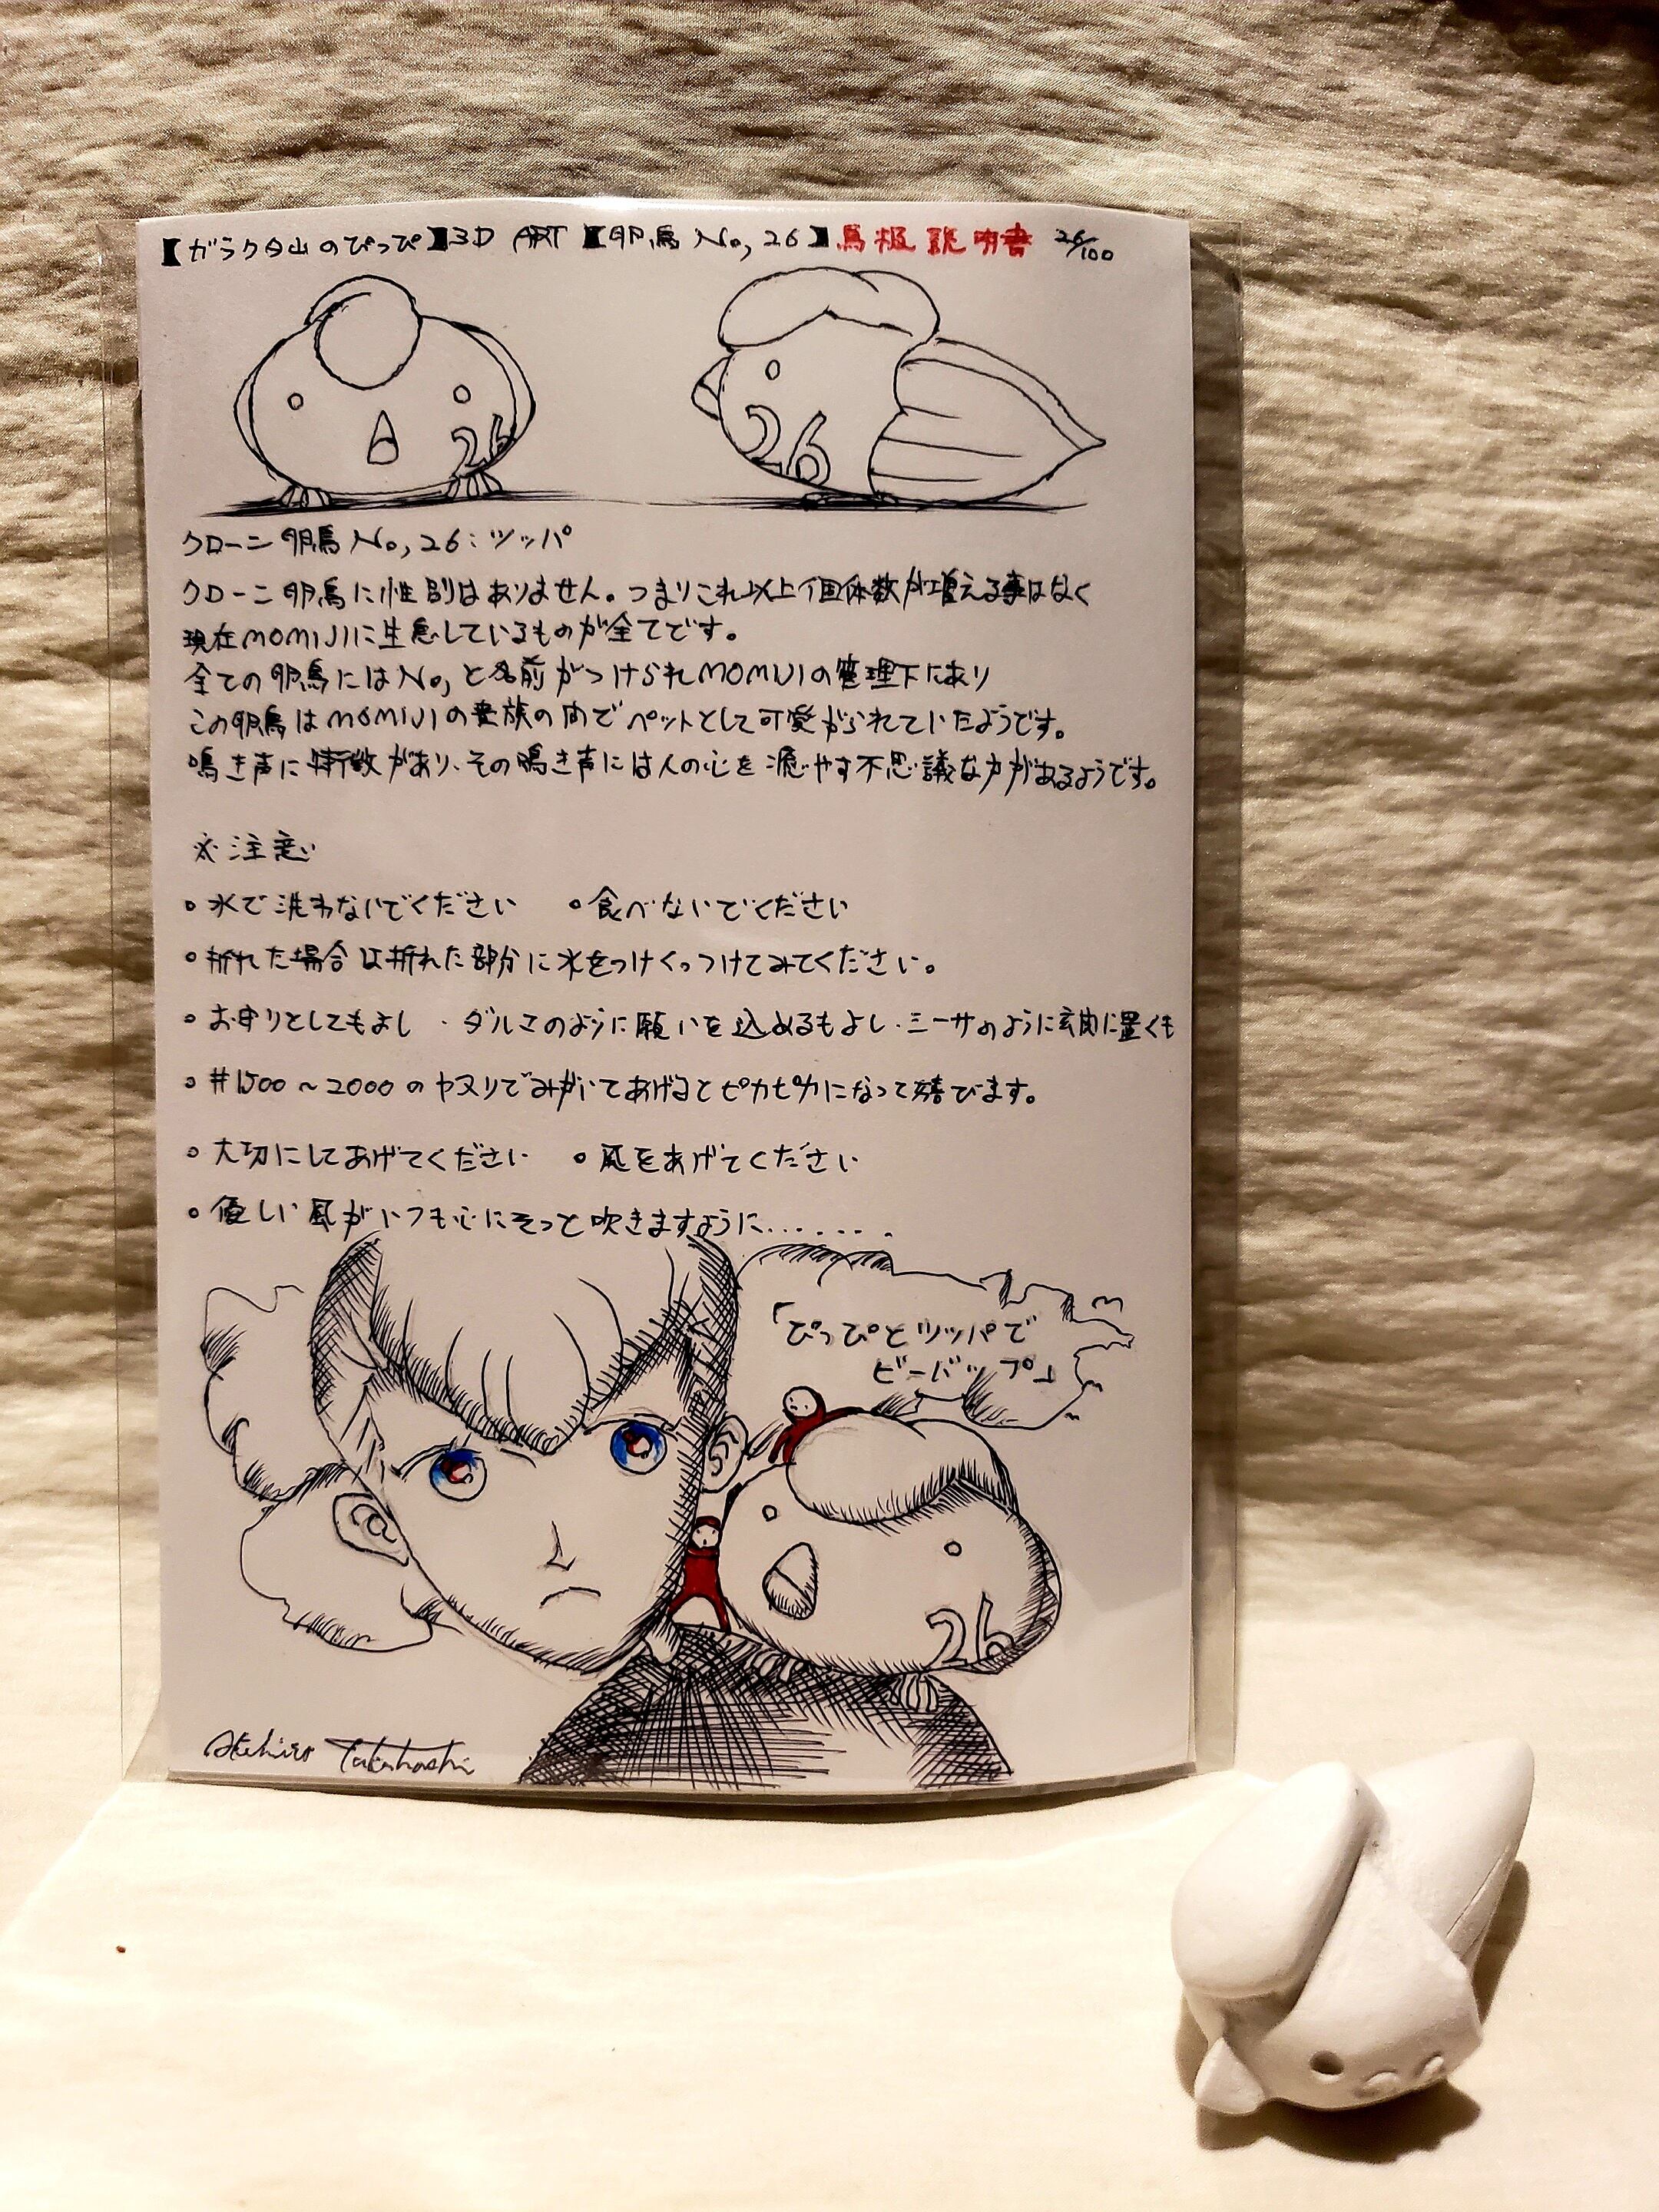 【ガラクタ山のぴっぴ】3D ART【卵鳥 No, 26】鳥扱説明書 26/100
26
26
クローン卵鳥 No, 26：ツッパ
クローン卵鳥に性別はありません。つまりこれ以上個体数が増える事はなく
現在MOMIJIに生息しているものが全てです。
全ての卵鳥にはNo,と名前がつけられMOMIJIの管理下にあり
この卵鳥はMOMIJIの貴族の間でペットとして可愛がられていたようです。
鳴き声に特徴があり、その鳴き声には人の心を癒やす不思議な力があるようです。
※注意
○水で洗わないでください ○食べないでください
○折れた場合は折れた部分に水をつけくっつけてみてください。
○お守りとしてもよし・ダルマのように願いを込めるもよし・シーサーのように玄関に置くも
○#1500〜2000のヤスリでみがいてあげるとピカピカになって喜びます。
○大切にしてあげてください ○風をあげてください
○優しい風がいつも心にそっと吹きますように......
「ぴっぴとツッパで
ビーバップ」
26
Akihiro Takahashi